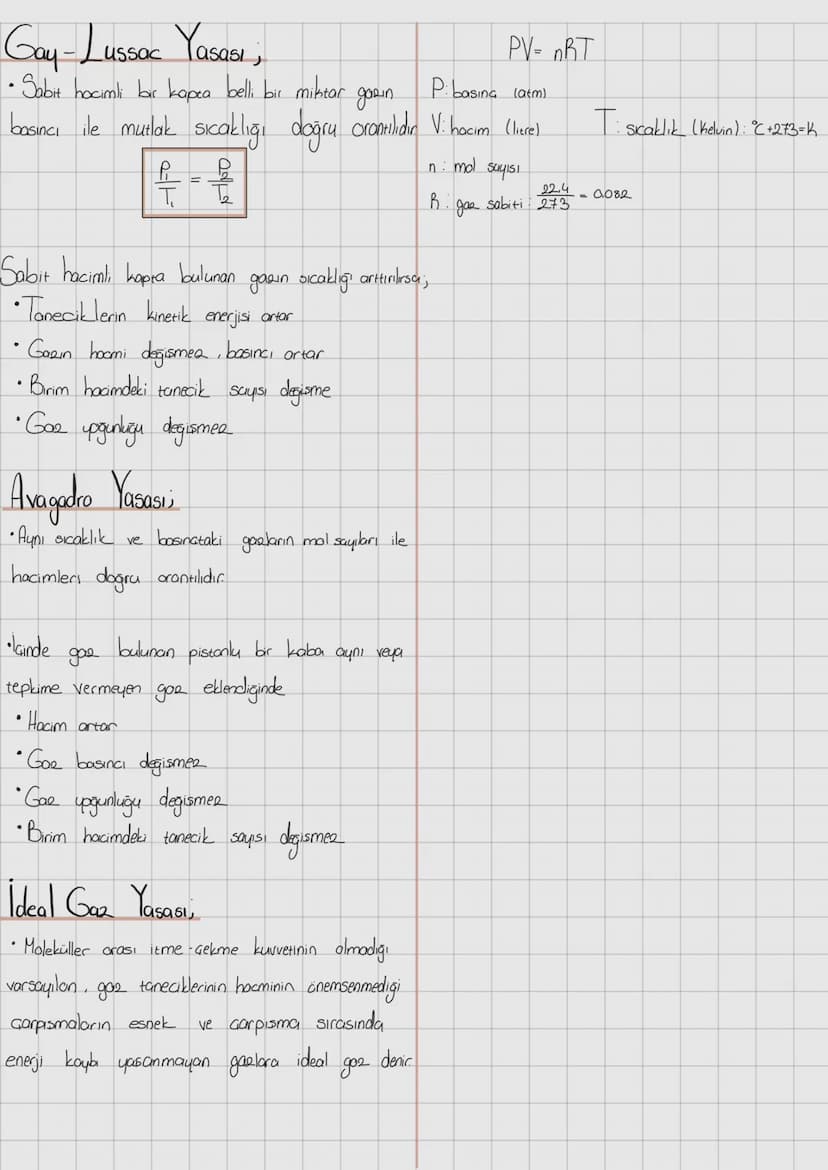 Gay-Lussac Yasası;
• Sabit hacimli bir kapta belli bir miktar gazın
basıncı ile mutlak sıcaklığı doğru orantılıdır
P₁/T₁ = P₂/T₂
Sabit hacimli kapta bulunan gazın sıcaklığı arttırılırsa;
• Taneciklerin kinetik enerjisi artar
• Gazın hacmi değişmez, basıncı artar
• Birim hacimdeki tanecik sayısı değişme
• Gaz yoğunluğu değişmez
Avagadro Yasası;
• Aynı sıcaklık ve basınçtaki gazların mol sayıları ile
hacimleri doğru orantılıdır.
• İçinde gaz bulunan pistonlu bir kaba aynı veya
tepkime vermeyen gaz eklendiğinde
• Hacim artar
• Gaz basıncı değişmez
• Gaz yoğunluğu değişmez
• Birim hacimdeki tanecik sayısı değişmez
İdeal Gaz Yasası;
• Moleküller arası itme-çekme kuvvetinin olmadığı
varsayılan, gaz taneciklerinin hacminin önemsenmediği
çarpışmaların esnek ve çarpışma sırasında
enerji kaybı yaşanmayan gazlara ideal gaz denir.
PV= nRT
P: basınç (atm)
V: hacim (litre) T: sıcaklık (kelvin): °C+273=K
n: mol sayısı
R: gaz sabiti: 22.4/273 = 0.082